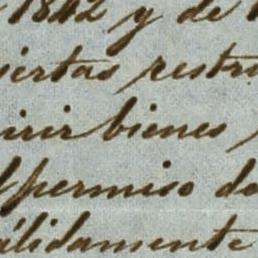 1842 y de
iertas restri
irir bienes
permiso de
álidamente